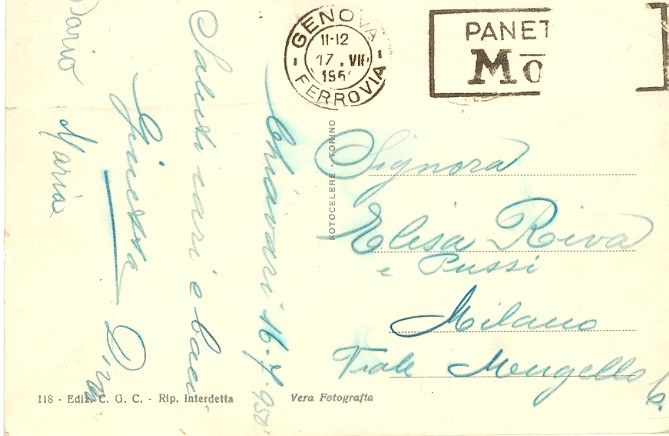 GENOVA
11-12
17 . VII
195
FERROVIA
PANET
Mo
Chiavari 16-7-950
Saluti cari e baci
Giuseppa
Dario Maria
FOTOCELERE - TORINO
Signora
Elisa Riva
e Pussi
Milano
Viale Mugello 6.
118 - Ediz. C. G. C. - Rip. Interdetta
Vera Fotografia